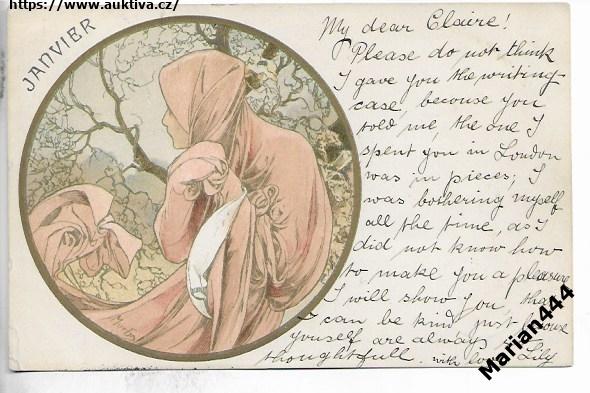 https://www.auktiva.cz/
JANVIER
My dear Claire!
Please do not think
I gave you the writing-
case, becouse you
told me, the one I
spent you in London
was in pieces; I
was bothering myself
all the time, as I
did not know how
to make you a pleasure
I will show you, that
I can be kind just
youself are always
thoughtfull. with Lily
Mucha
Marian444